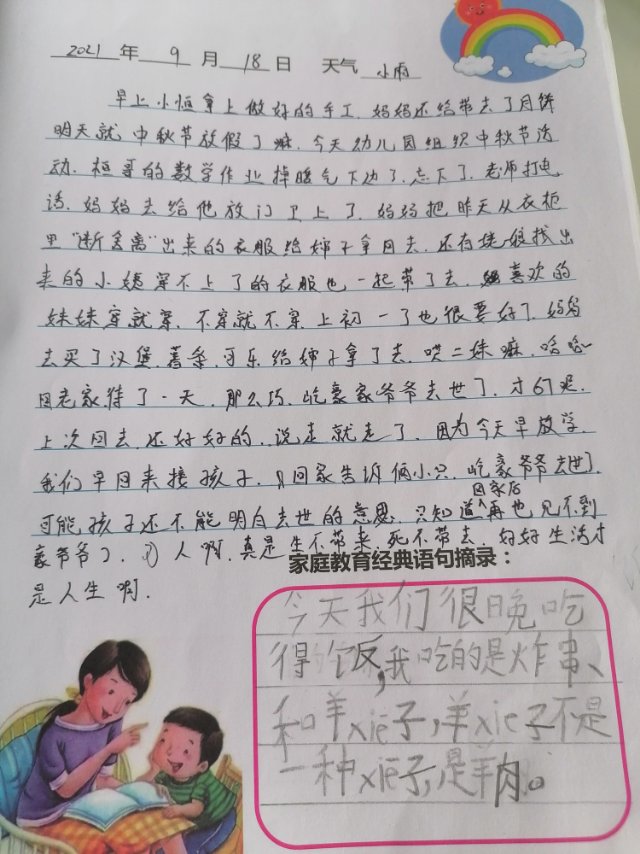 2021 年 9 月 18 日 天气 小雨
早上小恒拿上做好的手工.妈妈还给带去了月饼
明天就中秋节放假了嘛.今天幼儿园组织中秋节活
动.恒哥的数学作业掉暖气下边了.忘下了.老师打电
话.妈妈去给他放门卫上了.妈妈把昨天从衣柜
里"断舍离"出来的衣服给婶子拿回去.还有找出
来的小 穿不上了的衣服也一起带了去.喜欢的
妹妹穿就穿.不穿就不穿.上初一了也很要好了.妈妈
去买了汉堡.薯条.可乐给婶子拿了去.哄二妹嘛.哈哈~
回老家待了一天.那么巧.屹豪家爷爷去世了.才67呢.
上次回去.还好好的.说走就走了.因为今天早放学.
我们早回来接孩子.回家告诉俩小只.屹豪爷爷去世了.
可能孩子还不能明白去世的意思.只知道回家后再也见不到
豪爷爷了.人啊.真是生不带来.死不带去.好好生活才
是人生啊.
家庭教育经典语句摘录：
今天我们很晚吃
得饭,我吃的是炸串、
和羊xiē子,羊xiē子不是
一种xiē子,是羊肉。